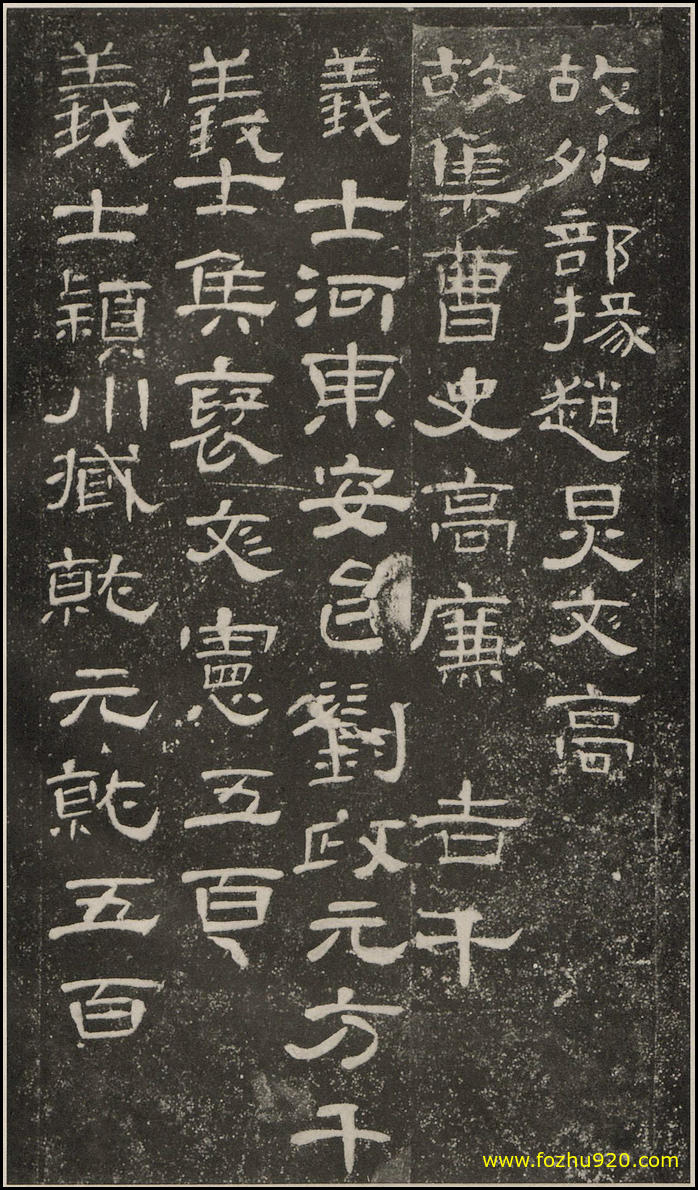 故外部掾趙炅文高
故集曹史高廉 吉千
義士河東安邑劉政元方千
義士侯褒文憲五百
義士穎川臧就元就五百
www.fozhu920.com